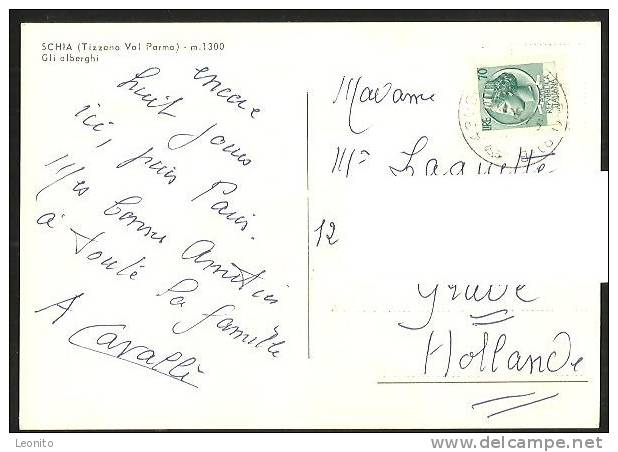 SCHIA (Tizzano Val Parma) - m.1300
Gli alberghi
encore
huit jours
ici, puis Paris.
Mes bonnes Amitiés
à toute la famille
A Cavalli
LIRE 70
Madame
12
Grave
Hollande
Leonito
delcampe.net